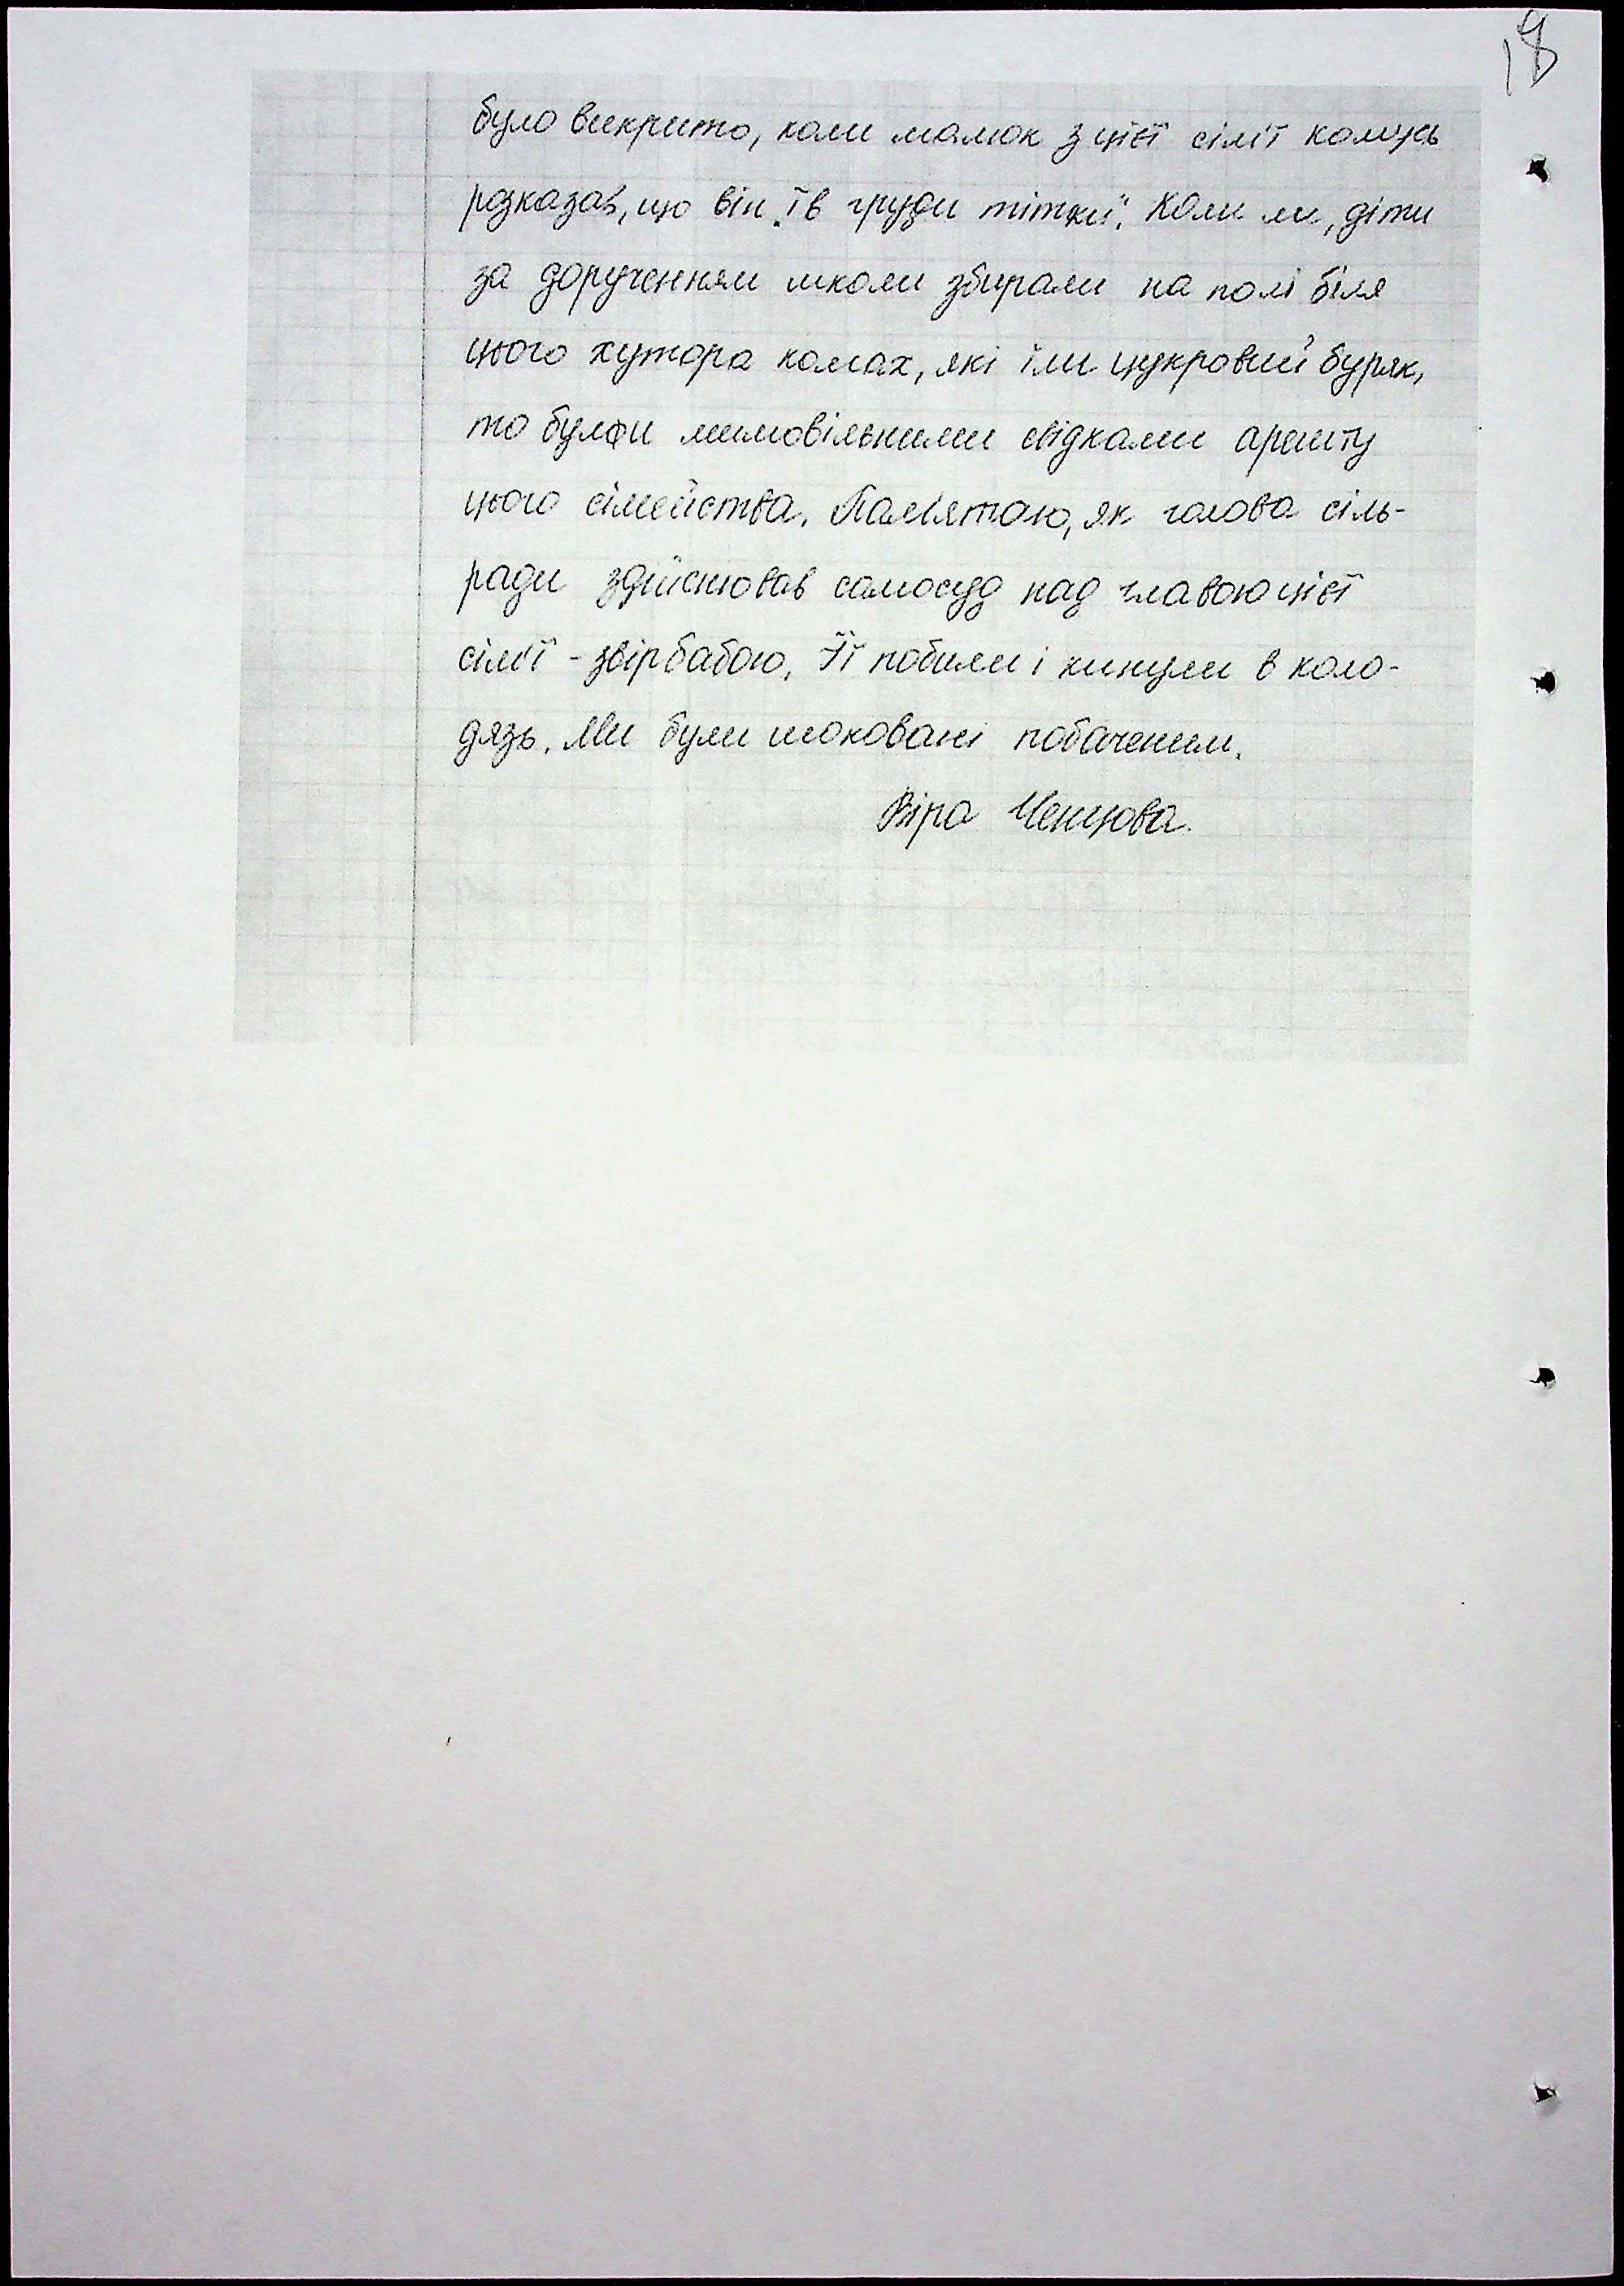 18
було викрито, коли малюк з цієї сім'ї комусь
розказав, що він „їв груди тітки“. Коли ми, діти
за дорученням школи збирали на полі біля
цього хутора комах, які їли цукровий буряк,
то були мимовільними свідками арешту
цього сімейства. Пам'ятаю, як голова сіль-
ради здійснював самосуд над главою цієї
сім'ї - звірбабою. Її побили і кинули в коло-
дязь. Ми були шоковані побаченим.
Віра Ченцова.